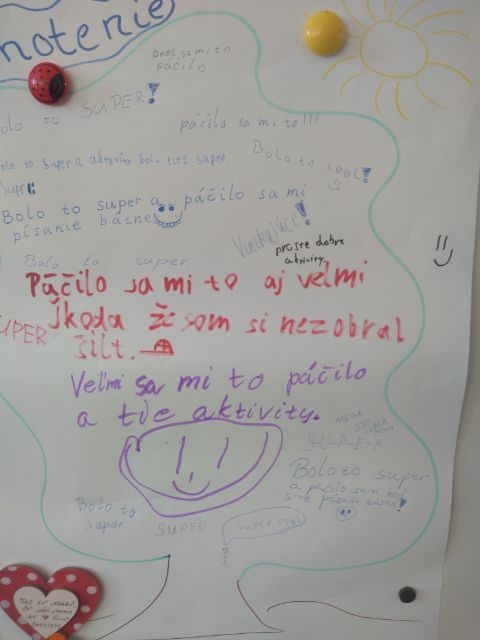 notenie
dnes sa mi to
páčilo
olo to SUPER!
páčilo sa mi to!!!
olo to super a aktivity boli tiež super.
Bolo to cool!
super
Bolo to super a páčilo sa mi
písanie básne
Vynikajúce!
proste dobre
aktivity.
Bolo to super.
Páčilo sa mi to aj veľmi
Škoda že som si nezobral
šilt.
SUPER
Veľmi sa mi to páčilo
a tie aktivity.
MEGA
S-U-P-E-R
Bolo to super
a páčilo sa mi keď
sme písali báseň!
Bolo to
super
SUPER
super cool